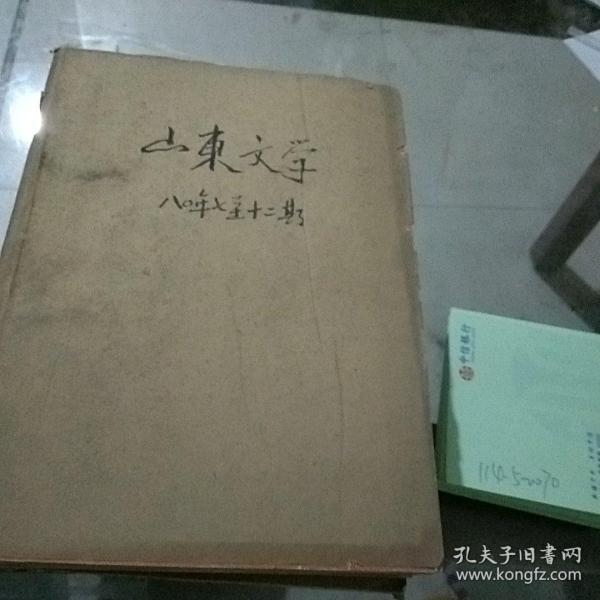 山東文学
八〇年七至十二期
中信银行
114-52070
孔夫子旧书网
www.kongfz.com